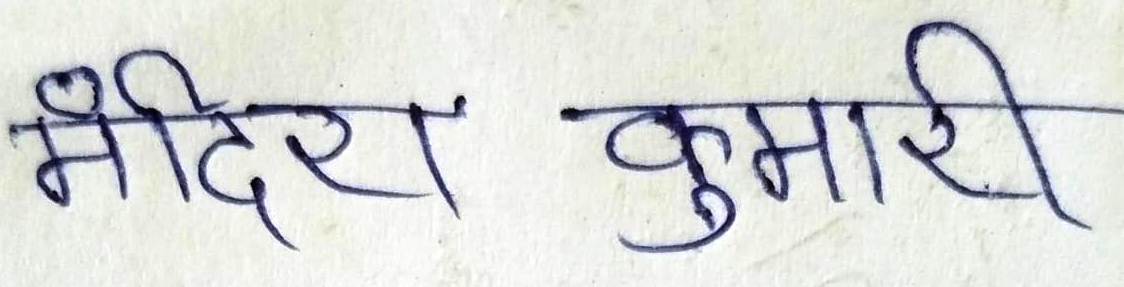 मंदिरा कुमारी